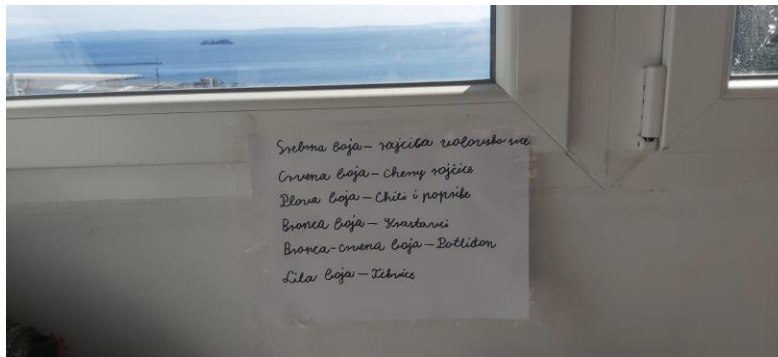 Srebrna boja – rajčica volovsko srce
Crvena boja – cherry rajčice
Plava boja – Chili i paprike
Bronca boja – Krastavci
Bronca-crvena boja – Patliđan
Lila boja – Tikvice